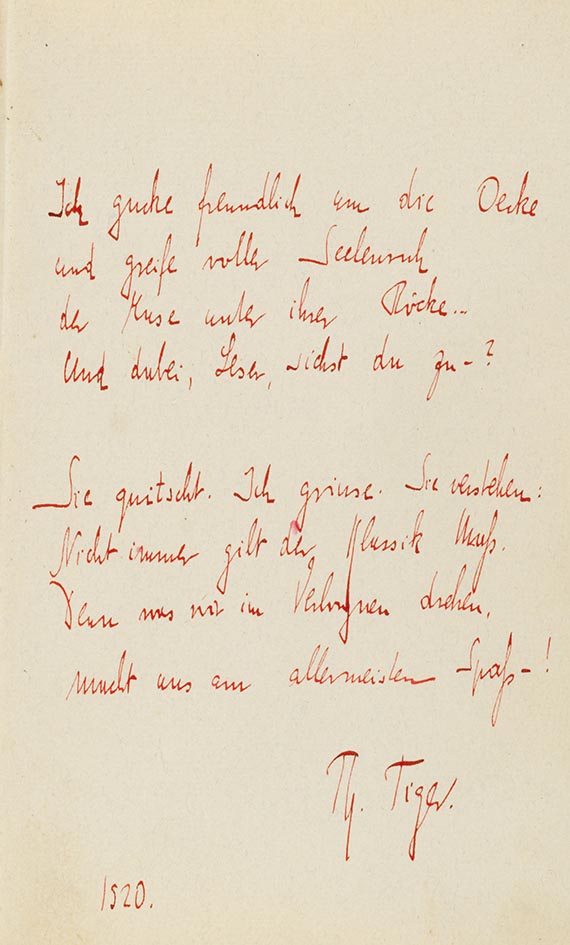 Ich gucke freundlich um die Oecke
und greife voller Seelenruh
der Muse unter ihrer Röcke...
Und dabei, Leser, siehst du zu – ?
Sie quitscht. Ich grinse. Sie verstehen:
Nicht immer gilt der Klassik Maß.
Denn was wir im Verborgnen drehen,
macht uns am allermeisten Spaß – !
Th. Tiger.
1920.